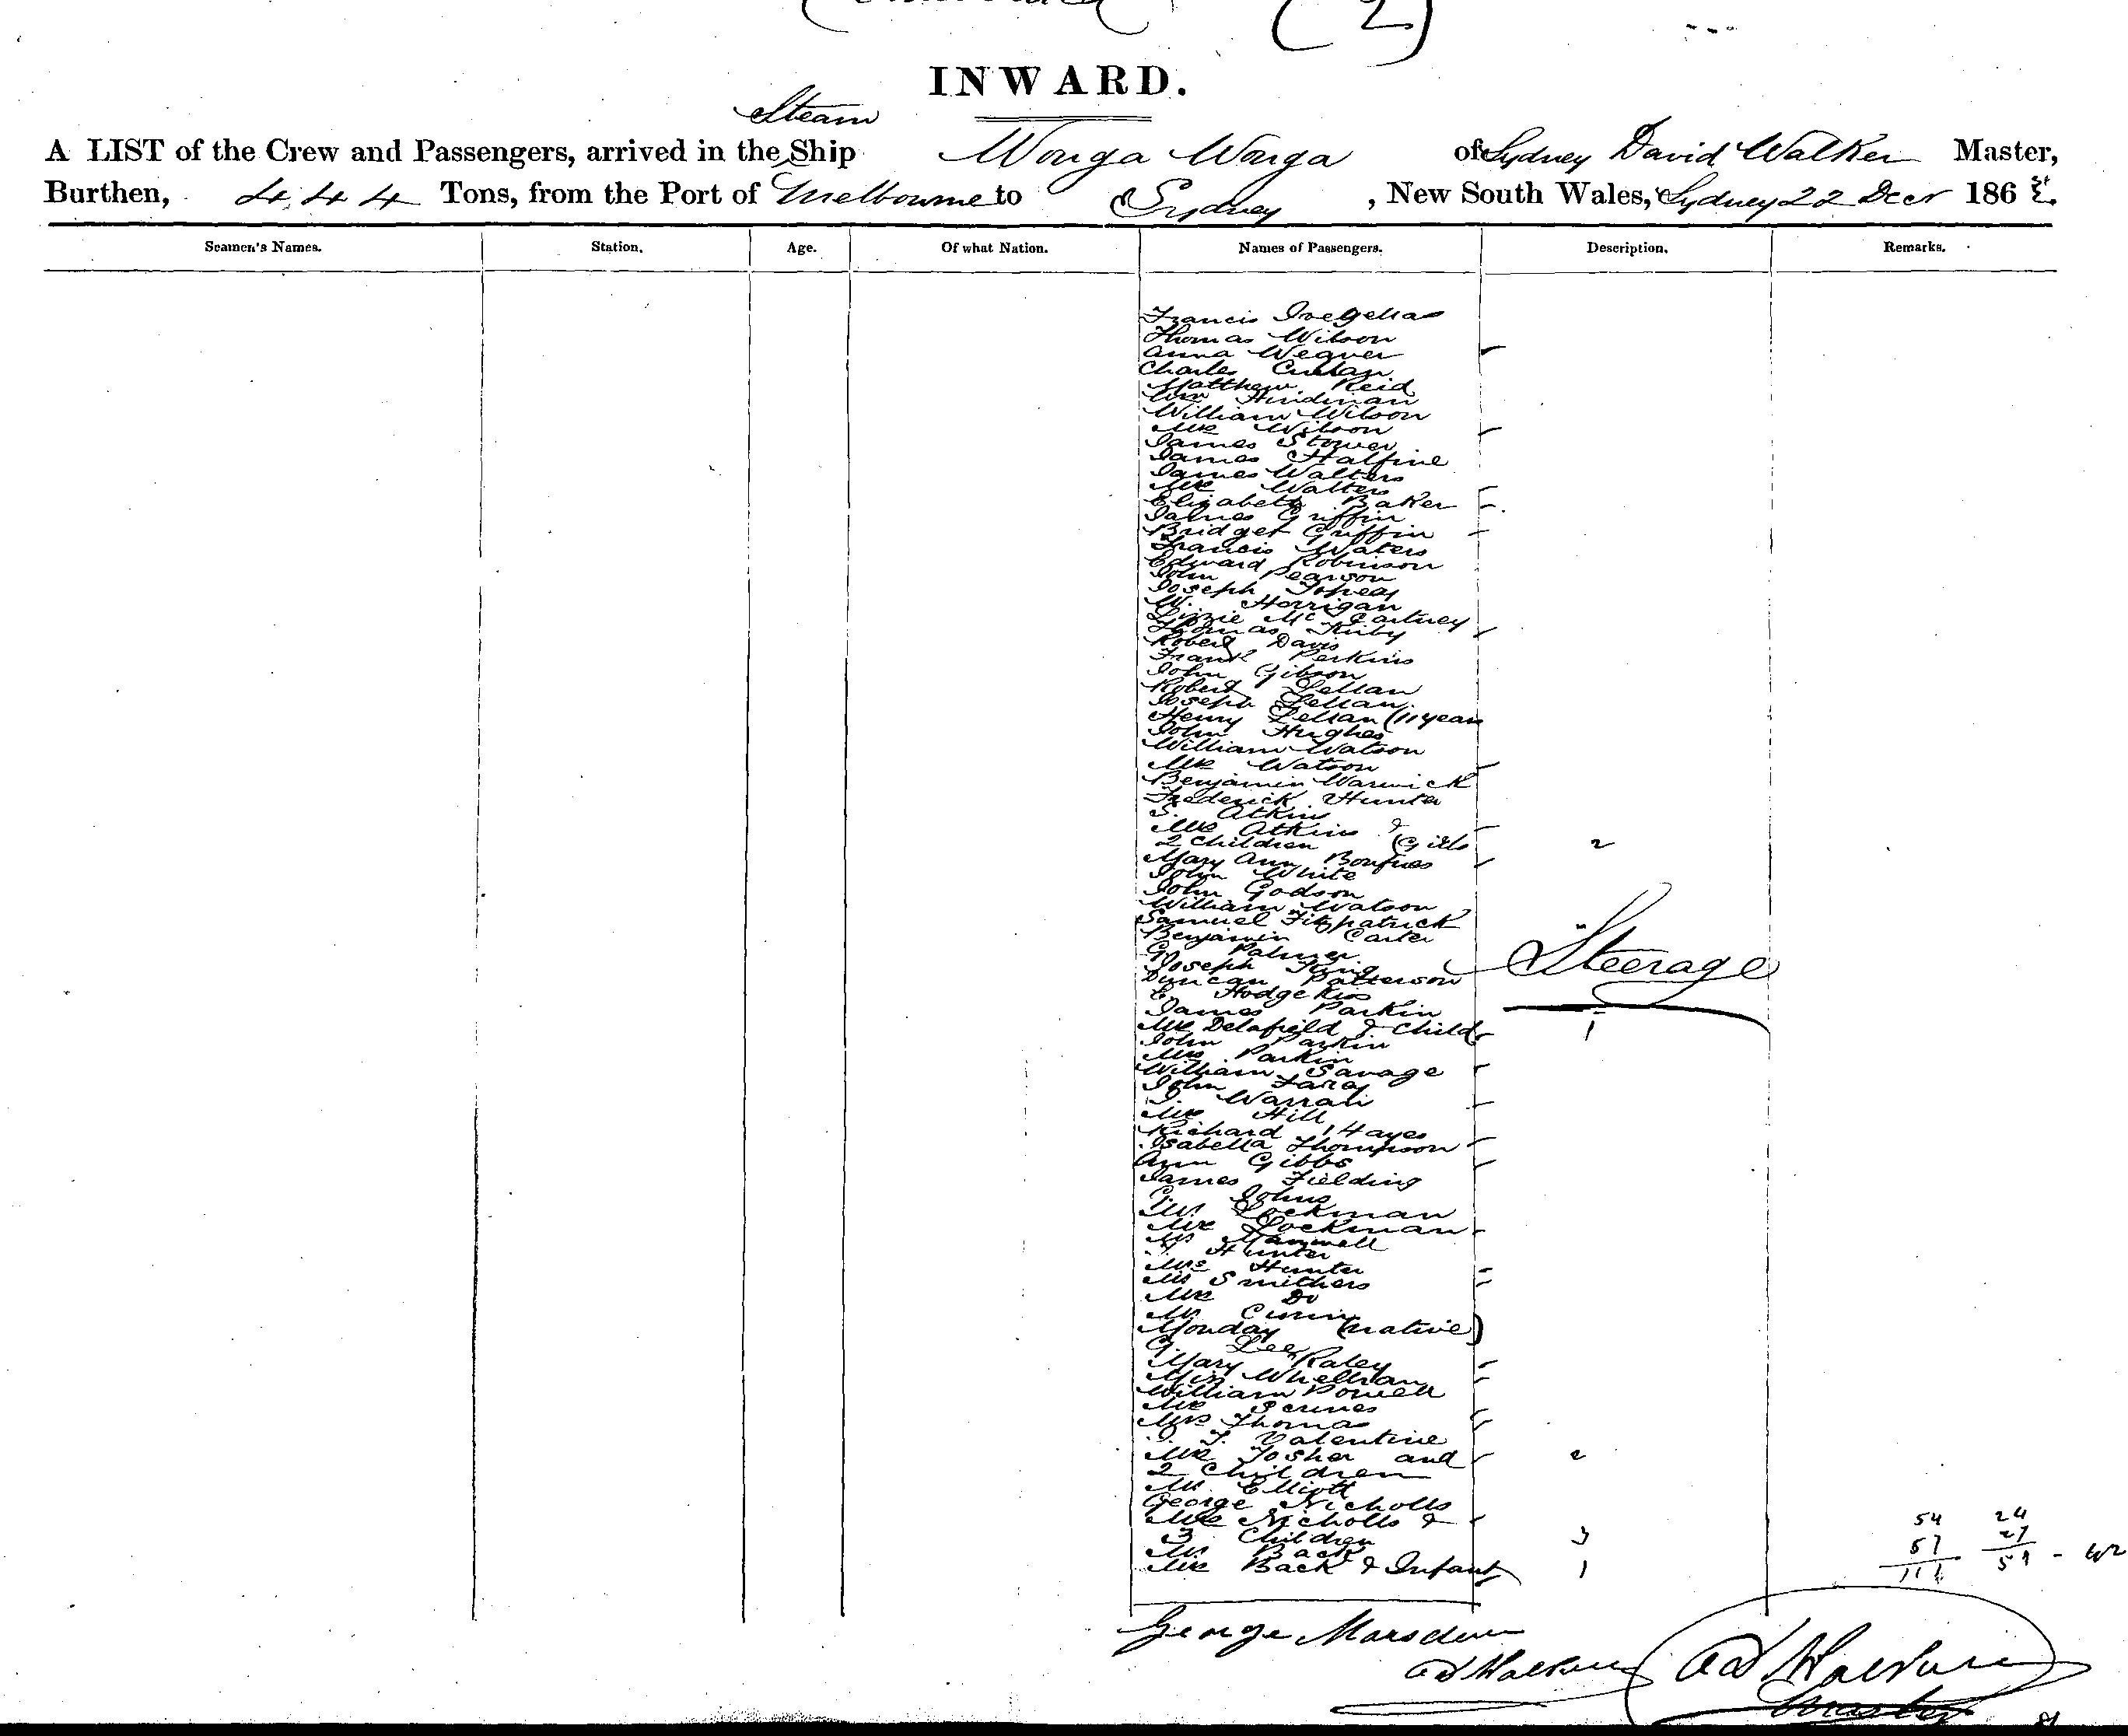 (2)
INWARD.
Steam
A LIST of the Crew and Passengers, arrived in the Ship Wonga Wonga of Sydney David Walker Master,
Burthen, 444 Tons, from the Port of Melbourne to Sydney, New South Wales, Sydney 22 Decr 186
Seamen's Names. Station. Age. Of what Nation. Names of Passengers. Description. Remarks.
Francis
Thomas Wilson
Anna Weaver
Charles
Matthew Reid
Hindman
William Wilson
Mrs Wilson
James Stower
James Halfine
James Walters
Mrs Walters
Elizabeth Baker
James Griffin
Bridget Griffin
Francis Waters
Edward Robinson
John Pearson
Joseph
W. Horrigan
Lizzie McCartney
Thomas Kirby
Robert Davis
Frank Perkins
John Gibson
Robert Lellan
Joseph Lellan
Henry Lellan (11 years
John Hughes
William Watson
Mrs Watson
Benjamin Warwick
Frederick Hunter
S. Atkins
Mrs Atkins &
2 Children (Girls 2
Mary Ann
John White
John Godson
William Watson
Samuel Fitzpatrick
Benjamin Carter
G. Palmer
Joseph King Steerage
Duncan Patterson
E. Hodgekiss
James Parkin
Mrs Delafield & Child 1
John Parkin
Mrs Parkin
William Savage
John
J. Warrali
Mrs Hill
Richard Hayes
Isabella Thompson
Ann Gibbs
James Fielding
Johns
Lockman
Mrs Lockman
Mr
Hunter
Mrs Hunter
Mr Smithers
Mrs Do
Mr
Monday (native)
G. Lee
Mary Raley
Miss Whelhan
William Powell
Mrs
Mrs Thomas
J. F. Valentine
Mrs Tosher and 2
2 Children
Mr Elliott
George Nicholls
Mrs Nicholls &
3 Children 3
Mr Back
Mrs Back & Infant 1
54 24
57 27
111 51
George Marsden
A D Walker
A D Walker
Master